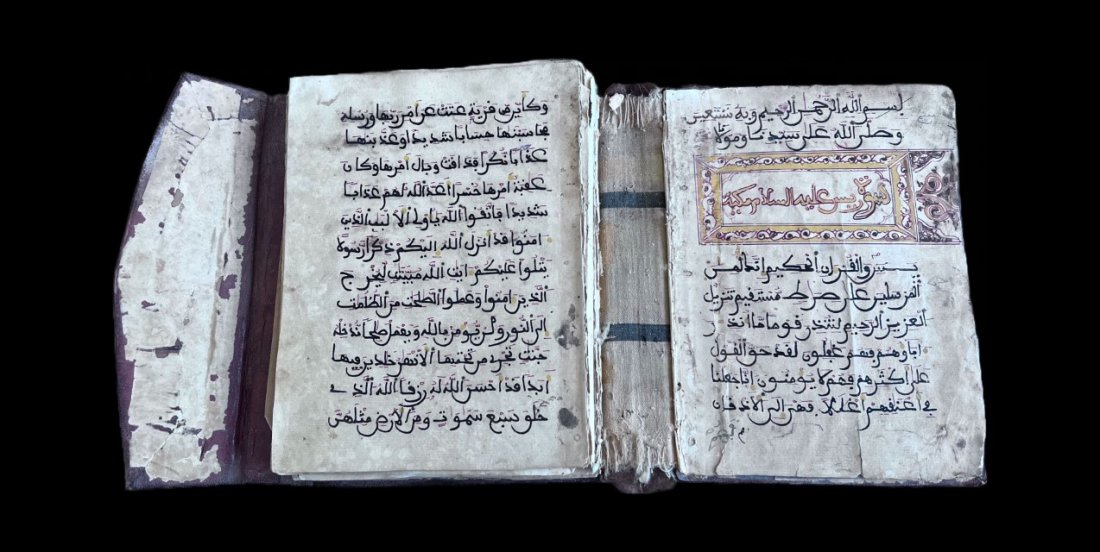 بسم الله الرحمن الرحيم وبه نستعين
وصلى الله على سيدنا ومولانا
سورة يس عليه السلام مكية
يس والقران الحكيم انك لمن
المرسلين على صرط مستقيم تنزيل
العزيز الرحيم لتنذر قوما ما انذر
اباوهم فهم غفلون لقد حق القول
على اكثرهم فهم لا يومنون انا جعلنا
في اعنقهم اغللا فهى الى الاذقان
فهم
وكأين من قرية عتت عن امر ربها ورسله
فحاسبنها حسابا شديدا وعذبنها
عذابا نكرا فذاقت وبال امرها وكان
عقبة امرها خسرا اعد الله لهم عذابا
شديدا فاتقوا الله ياولى الالبب الذين
امنوا قد انزل الله اليكم ذكرا رسولا
يتلوا عليكم ايت الله مبينت ليخرج
الذين امنوا وعملوا الصلحت من الظلمت
الى النور ومن يومن بالله ويعمل صلحا ندخله
جنت تجرى من تحتها الانهر خلدين فيها
ابدا قد احسن الله له رزقا الله الذى
خلق سبع سموت ومن الارض مثلهن